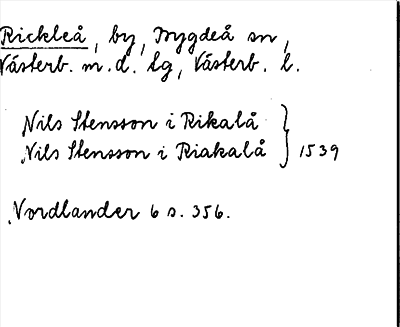 Rickleå, by, Bygdeå sn,
Västerb. m.d. tg, Västerb. l.
Nils Stensson i Rikalå
Nils Stensson i Riakalå } 1539
Nordlander 6 s. 356.